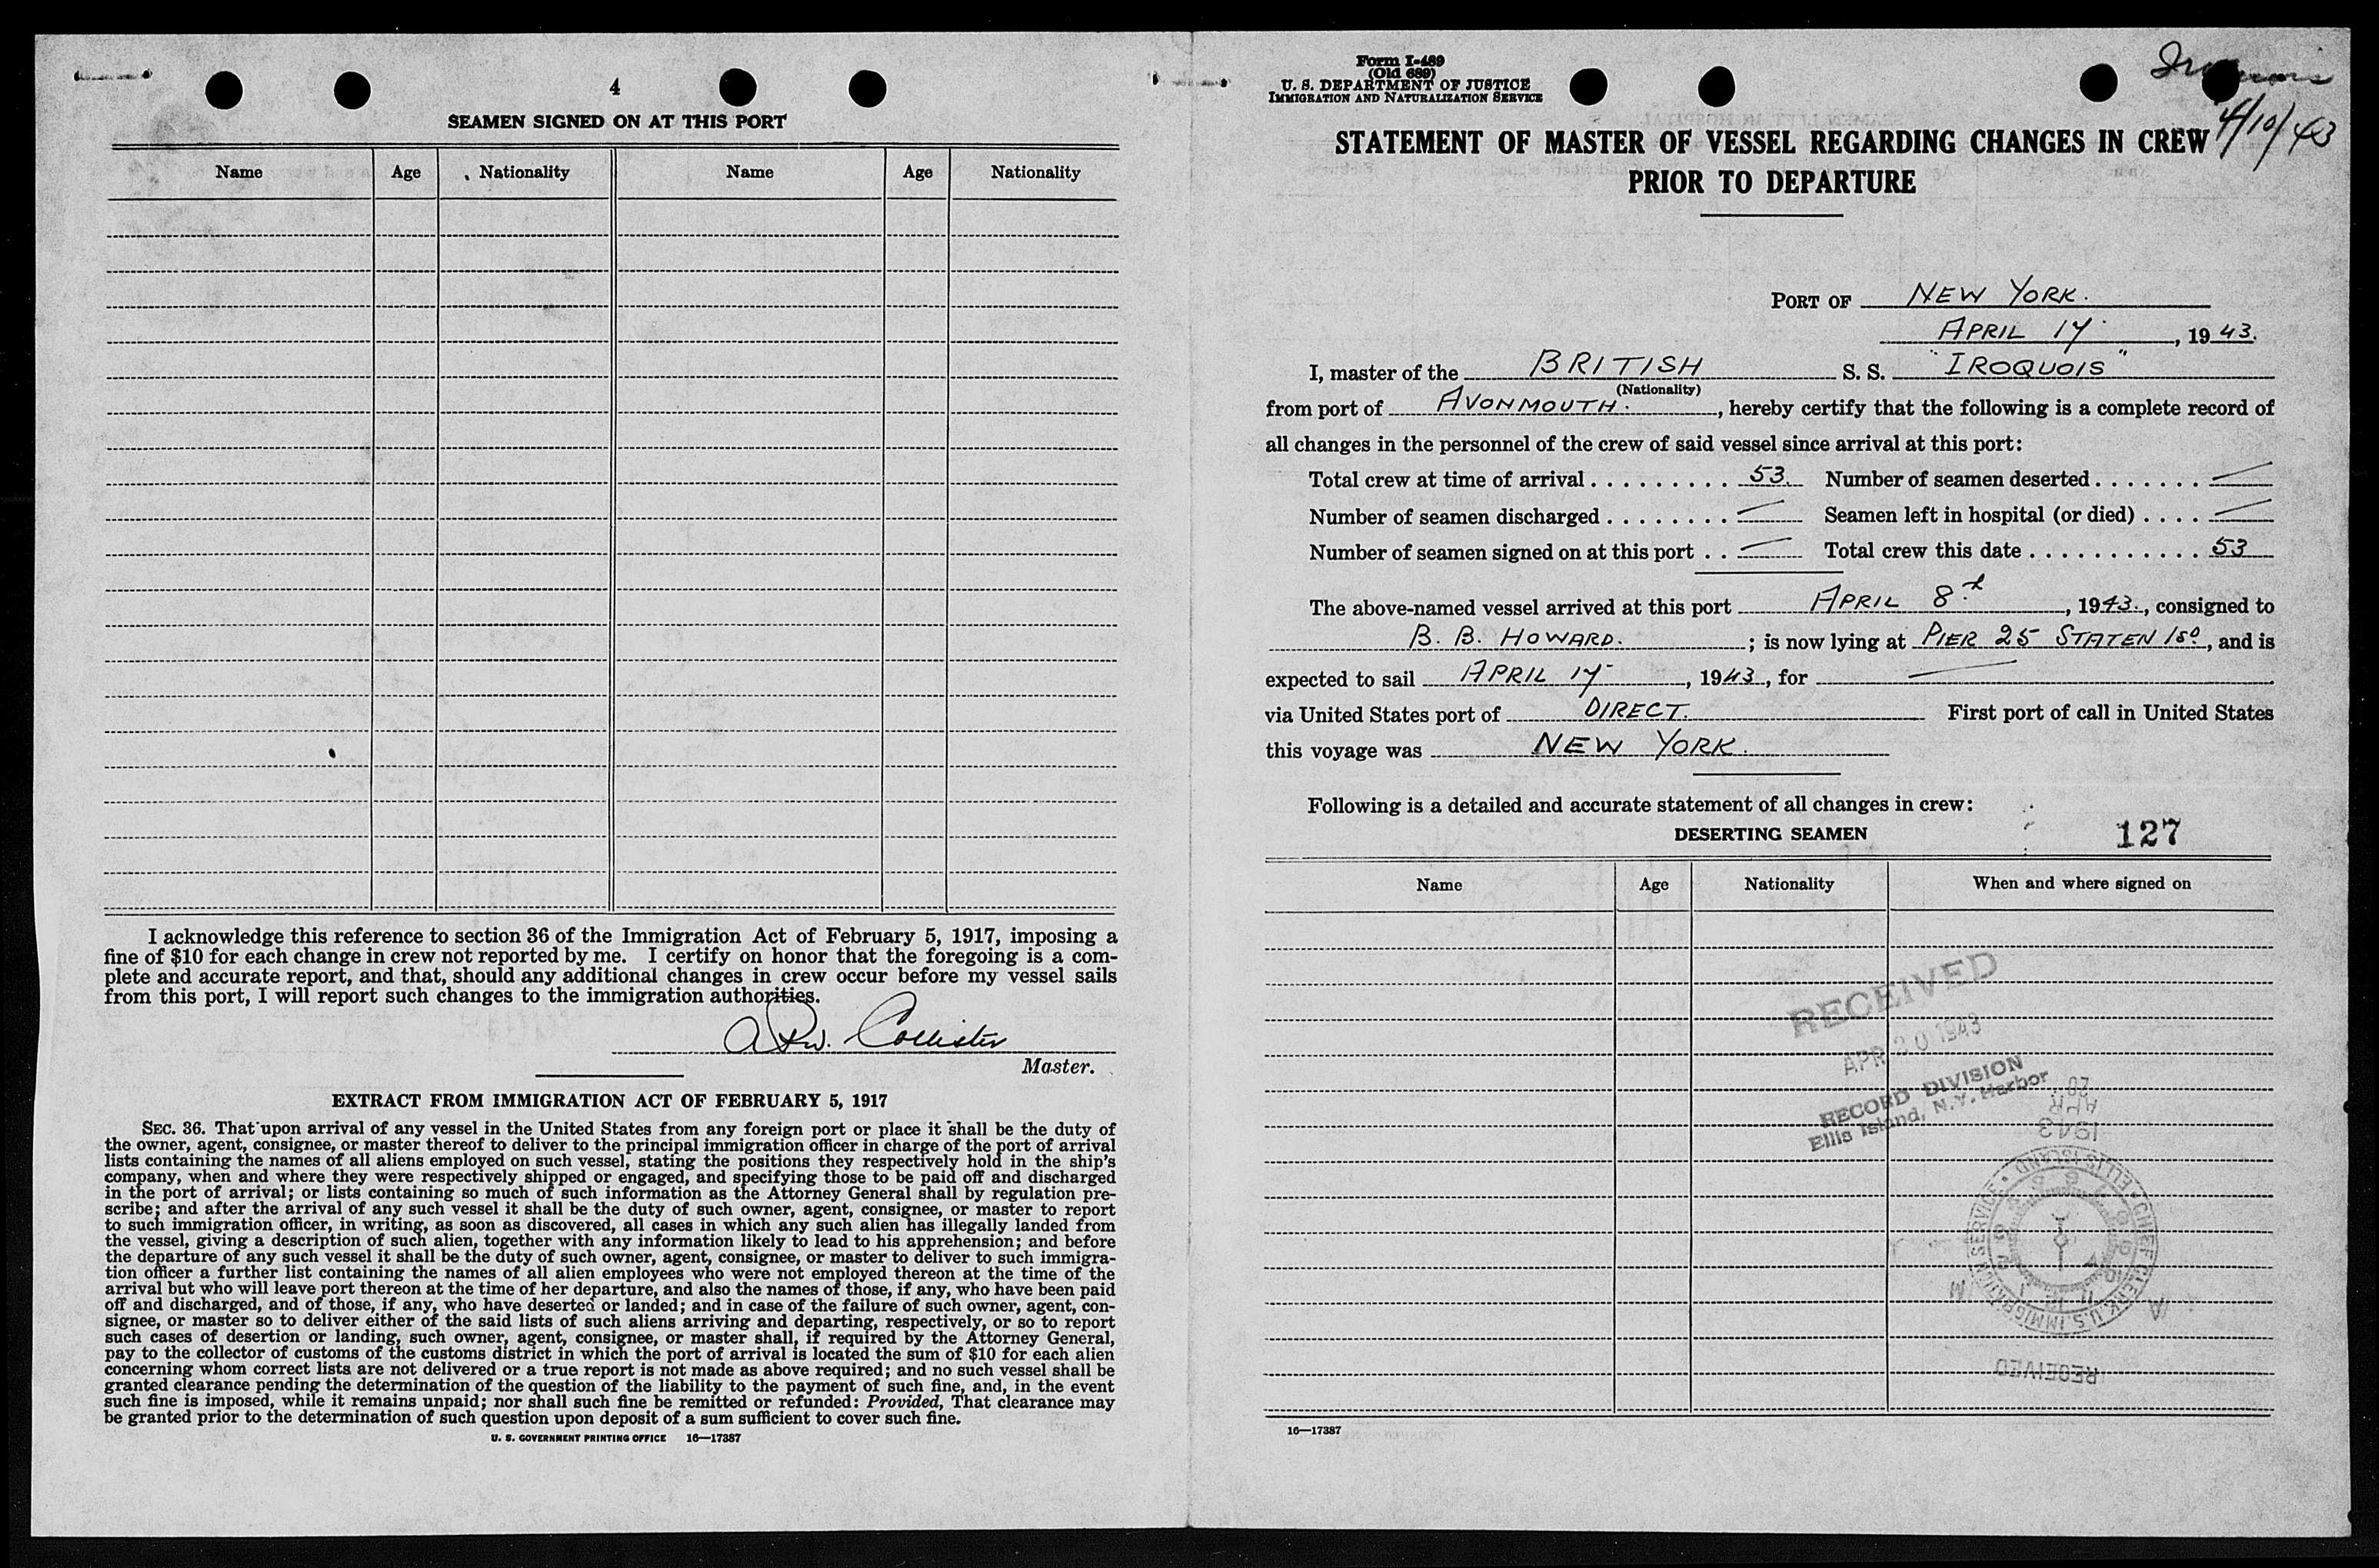 4
SEAMEN SIGNED ON AT THIS PORT
Name Age Nationality Name Age Nationality
I acknowledge this reference to section 36 of the Immigration Act of February 5, 1917, imposing a
fine of $10 for each change in crew not reported by me. I certify on honor that the foregoing is a com-
plete and accurate report, and that, should any additional changes in crew occur before my vessel sails
from this port, I will report such changes to the immigration authorities.
Collister
Master.
EXTRACT FROM IMMIGRATION ACT OF FEBRUARY 5, 1917
SEC. 36. That upon arrival of any vessel in the United States from any foreign port or place it shall be the duty of
the owner, agent, consignee, or master thereof to deliver to the principal immigration officer in charge of the port of arrival
lists containing the names of all aliens employed on such vessel, stating the positions they respectively hold in the ship's
company, when and where they were respectively shipped or engaged, and specifying those to be paid off and discharged
in the port of arrival; or lists containing so much of such information as the Attorney General shall by regulation pre-
scribe; and after the arrival of any such vessel it shall be the duty of such owner, agent, consignee, or master to report
to such immigration officer, in writing, as soon as discovered, all cases in which any such alien has illegally landed from
the vessel, giving a description of such alien, together with any information likely to lead to his apprehension; and before
the departure of any such vessel it shall be the duty of such owner, agent, consignee, or master to deliver to such immigra-
tion officer a further list containing the names of all alien employees who were not employed thereon at the time of the
arrival but who will leave port thereon at the time of her departure, and also the names of those, if any, who have been paid
off and discharged, and of those, if any, who have deserted or landed; and in case of the failure of such owner, agent, con-
signee, or master so to deliver either of the said lists of such aliens arriving and departing, respectively, or so to report
such cases of desertion or landing, such owner, agent, consignee, or master shall, if required by the Attorney General,
pay to the collector of customs of the customs district in which the port of arrival is located the sum of $10 for each alien
concerning whom correct lists are not delivered or a true report is not made as above required; and no such vessel shall be
granted clearance pending the determination of the question of the liability to the payment of such fine, and, in the event
such fine is imposed, while it remains unpaid; nor shall such fine be remitted or refunded: Provided, That clearance may
be granted prior to the determination of such question upon deposit of a sum sufficient to cover such fine.
U. S. GOVERNMENT PRINTING OFFICE 16—17387
Form I-489
(Old 689)
U. S. DEPARTMENT OF JUSTICE
IMMIGRATION AND NATURALIZATION SERVICE
4/10/43
STATEMENT OF MASTER OF VESSEL REGARDING CHANGES IN CREW
PRIOR TO DEPARTURE
PORT OF NEW YORK.
APRIL 14, 1943.
I, master of the BRITISH S. S. "IROQUOIS"
(Nationality)
from port of AVONMOUTH., hereby certify that the following is a complete record of
all changes in the personnel of the crew of said vessel since arrival at this port:
Total crew at time of arrival . . . . . . . . . 53. Number of seamen deserted . . . . . . . —
Number of seamen discharged . . . . . . . . — Seamen left in hospital (or died) . . . . —
Number of seamen signed on at this port . . — Total crew this date . . . . . . . . . . . 53
The above-named vessel arrived at this port APRIL 8th, 1943., consigned to
B. B. HOWARD. ; is now lying at PIER 25 STATEN ISD, and is
expected to sail APRIL 14, 1943, for —
via United States port of DIRECT. First port of call in United States
this voyage was NEW YORK.
Following is a detailed and accurate statement of all changes in crew:
DESERTING SEAMEN
127
Name Age Nationality When and where signed on
RECEIVED
APR 20 1943
RECORD DIVISION
Ellis Island, N.Y. Harbor
APR 20
1943
CHIEF CLERK, U.S. IMMIGRATION SERVICE • ELLIS ISLAND •
RECEIVED
16—17387